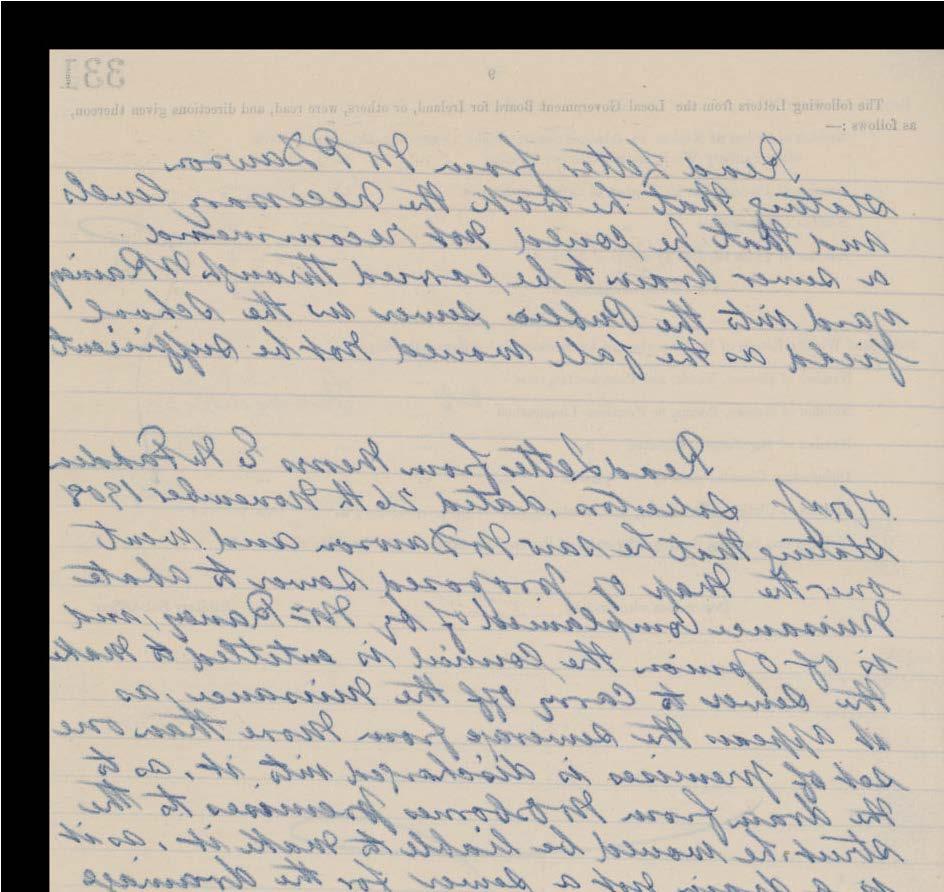 331
9
The following Letters from the Local Government Board for Ireland, or others, were read, and directions given thereon,
as follows :—
Read Letter from Mr R Dawson
stating that he took the necessary levels
and that he could not recommend
a sewer drain to be carried through Mr Raineys
yard into the Public sewer in the School
field as the fall would not be sufficient
Read Letter from Messrs E &
Son solicitors, dated 26th November 1908
stating that he saw Mr Dawson and went
over the Map of proposed sewer to abate
Nuisance Complained of by Mrs Raney, and
is of opinion the Council is entitled to make
the sewer to carry off the Nuisance, as
it appears the sewerage from More than one
set of premises is discharged into it, as to
the drain from Mr Osbornes premises to the
street, he would be liable to make it, as it
is a drain not a sewer for the drainage